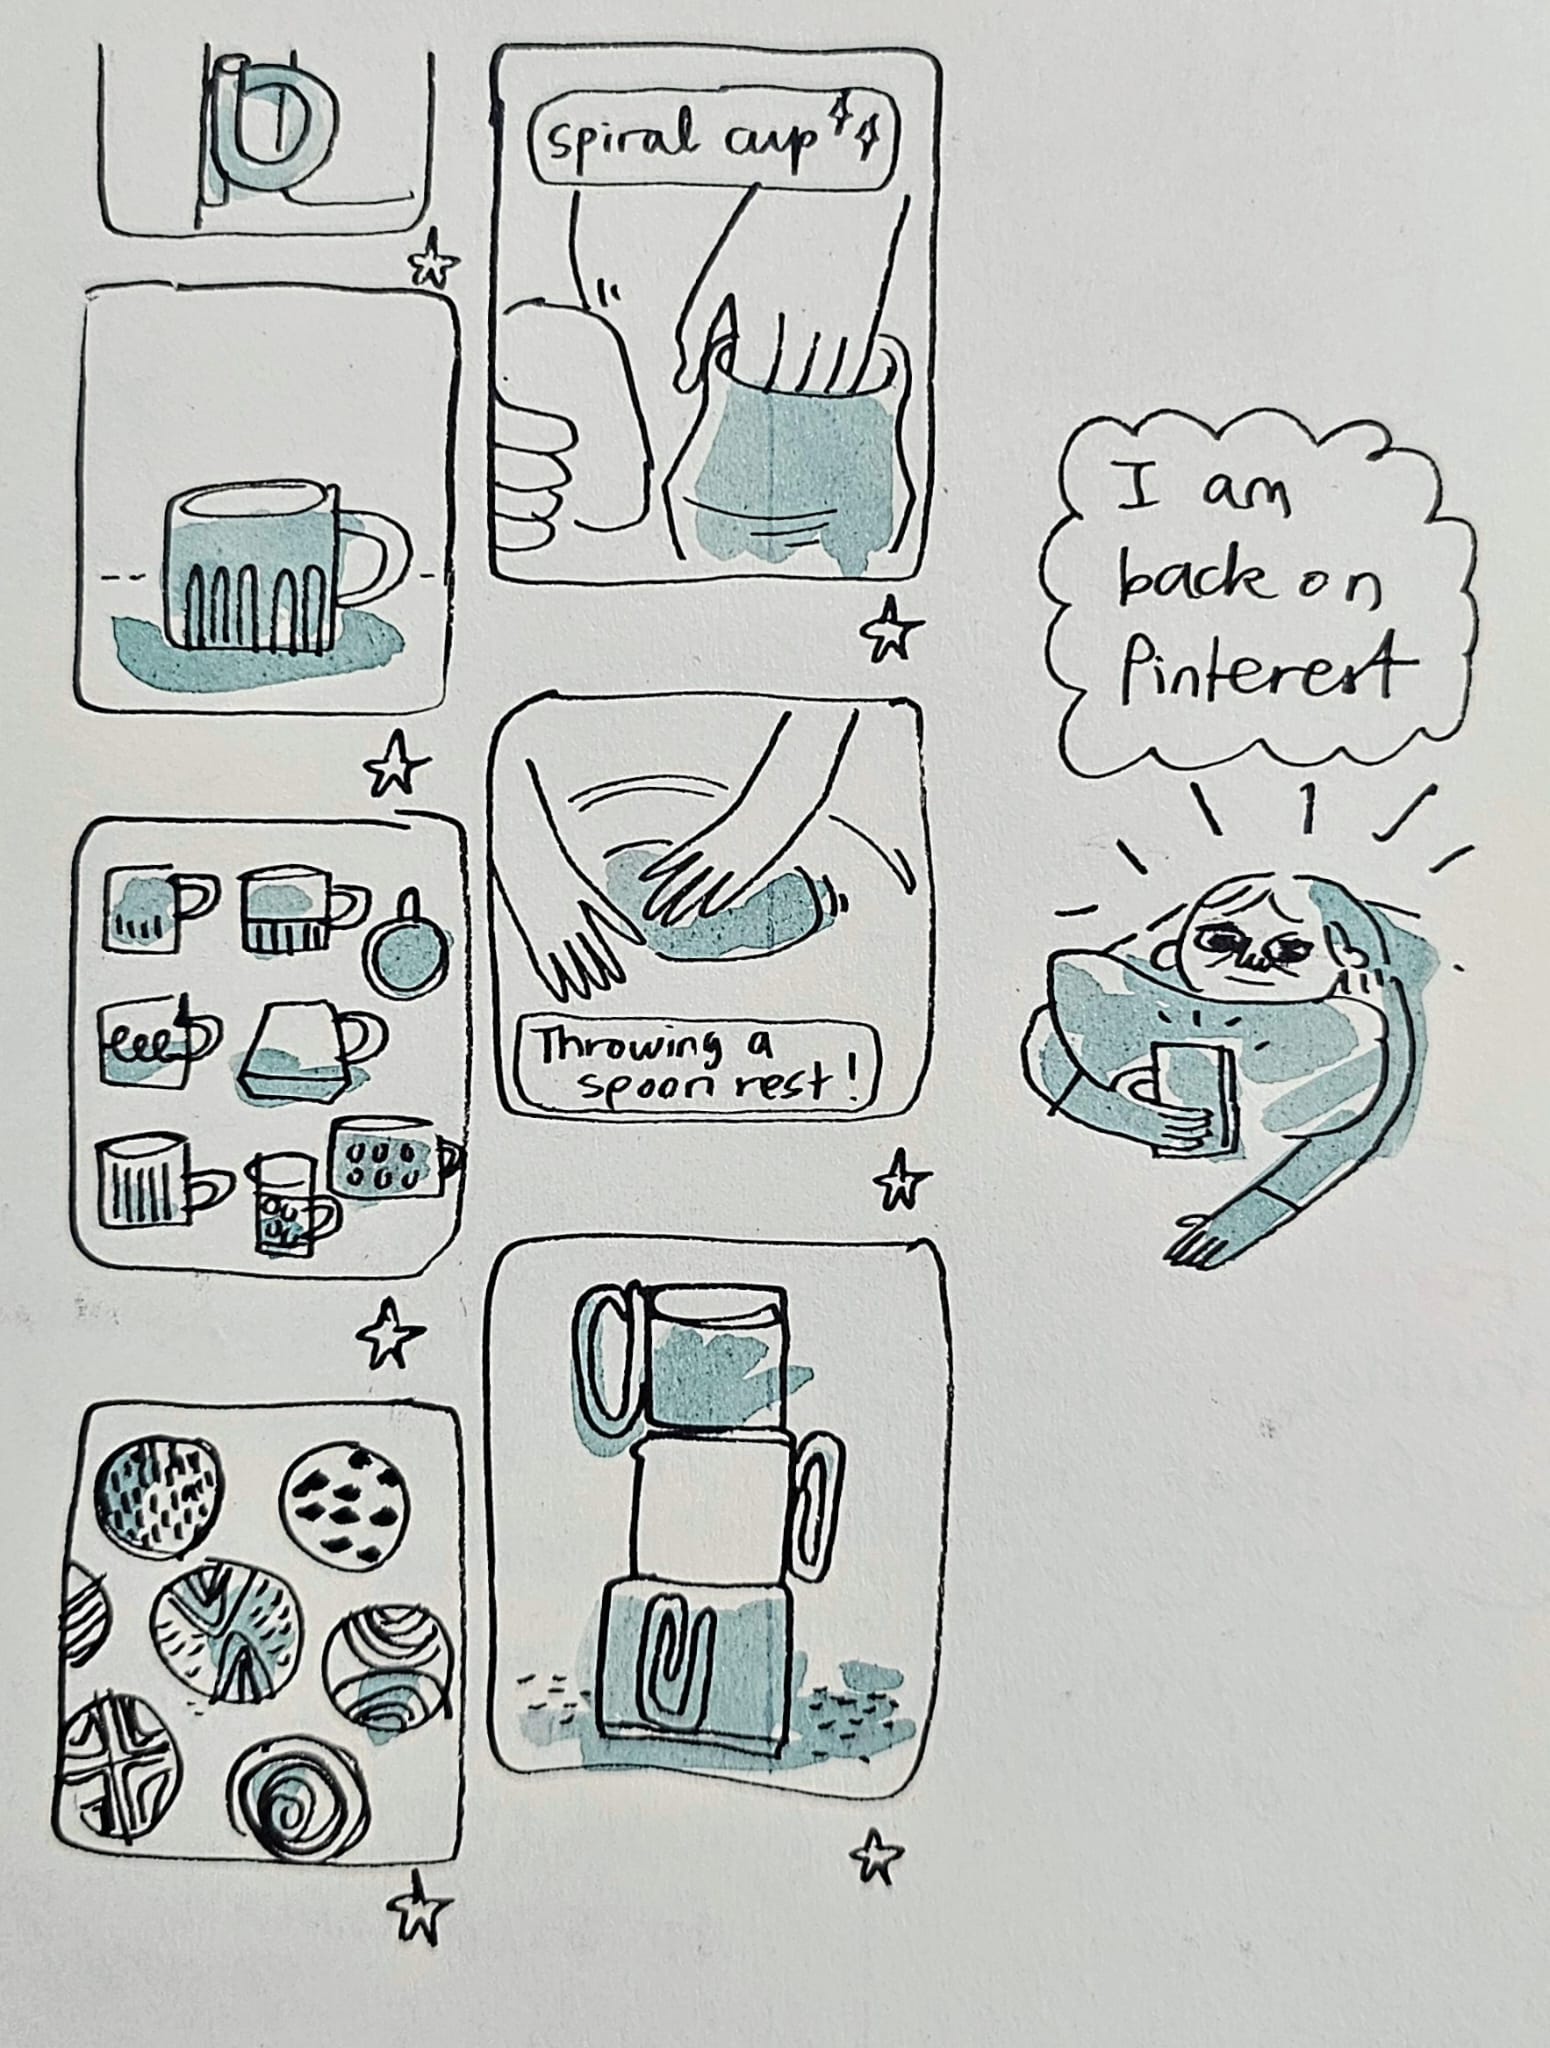 spiral cup
Throwing a
spoon rest!
I am
back on
Pinterest